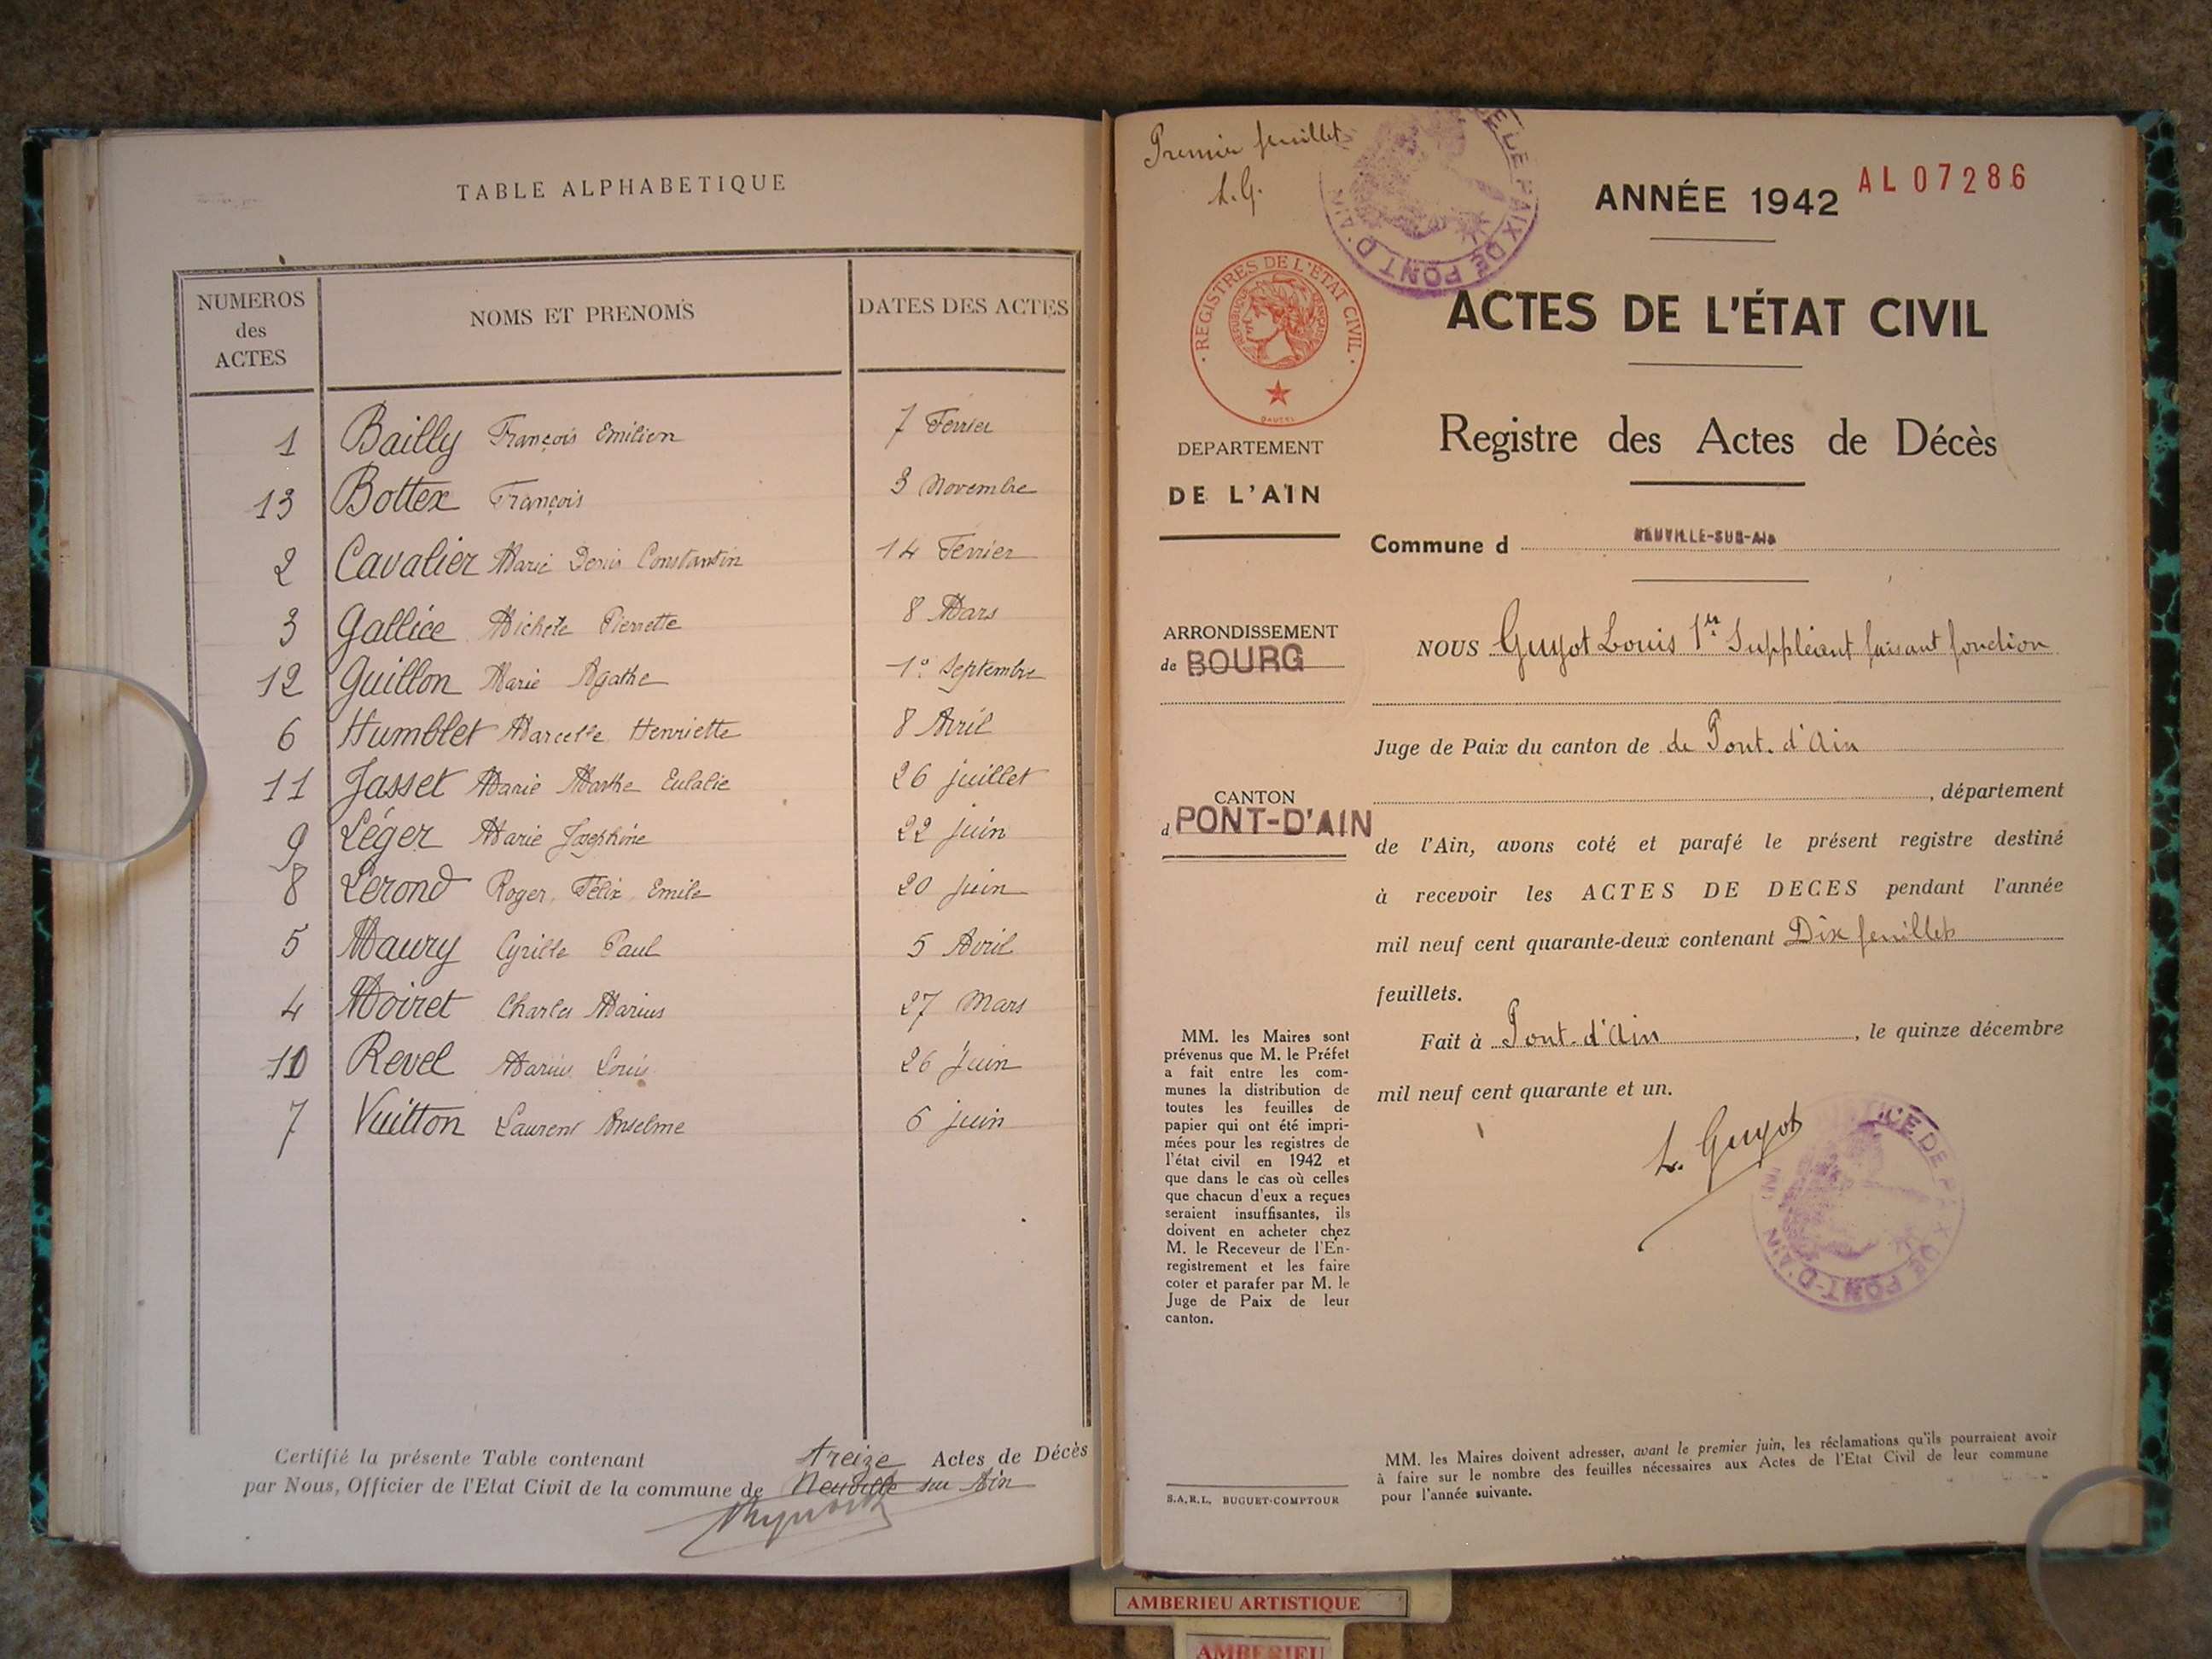 TABLE ALPHABETIQUE
NUMEROS des ACTES
NOMS ET PRENOMS
DATES DES ACTES
1 Bailly François Emilien 7 Fevrier
13 Bottex François 3 Novembre
2 Cavalier Marie Denis Constantin 14 Fevrier
3 Gallice Michele Pierrette 8 Mars
12 Guillon Marie Agathe 1º Septembre
6 Humblet Marcelle Henriette 8 Avril
11 Jasset Marie Marthe Eulalie 26 juillet
9 Léger Marie Josephine 22 juin
8 Lerond Roger, Félix, Emile 20 juin
5 Maury Cyrille Paul 5 Avril
4 Moiret Charles Marius 27 Mars
10 Revel Marius Louis 26 juin
7 Vuitton Laurent Anselme 6 juin
Certifié la présente Table contenant treize Actes de Décès
par Nous, Officier de l'Etat Civil de la commune de Neuville sur Ain
Premier feuillet
L.G.
ANNÉE 1942 AL 07286
REGISTRES DE L'ETAT CIVIL
ACTES DE L'ÉTAT CIVIL
Registre des Actes de Décès
DEPARTEMENT
DE L'AIN
Commune d NEUVILLE-SUR-Ain
ARRONDISSEMENT
de BOURG
NOUS Guyot Louis 1er Suppléant faisant fonction
Juge de Paix du canton de de Pont-d'Ain
CANTON
d PONT-D'AIN
, département
de l'Ain, avons coté et parafé le présent registre destiné
à recevoir les ACTES DE DECES pendant l'année
mil neuf cent quarante-deux contenant Dix feuillets
feuillets.
Fait à Pont-d'Ain, le quinze décembre
mil neuf cent quarante et un.
L. Guyot
MM. les Maires sont
prévenus que M. le Préfet
a fait entre les com-
munes la distribution de
toutes les feuilles de
papier qui ont été impri-
mées pour les registres de
l'état civil en 1942 et
que dans le cas où celles
que chacun d'eux a reçues
seraient insuffisantes, ils
doivent en acheter chez
M. le Receveur de l'En-
registrement et les faire
coter et parafer par M. le
Juge de Paix de leur
canton.
S.A.R.L. BUGUET-COMPTOUR
MM. les Maires doivent adresser, avant le premier juin, les réclamations qu'ils pourraient avoir
à faire sur le nombre des feuilles nécessaires aux Actes de l'Etat Civil de leur commune
pour l'année suivante.
AMBERIEU ARTISTIQUE
AMBERIEU